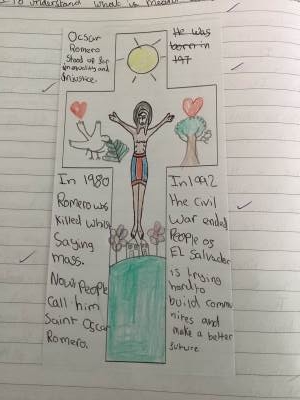 to understand what is meant
Ocsar
Romero
Stood up for
inequality and
injustice.
He was
born in
197
In 1980
Romero was
killed whilst
Saying
mass.
Now People
Call him
Saint Oscar
Romero.
In 1992
the civil
war ended
People of
EL Salvador
is trying
hard to
build commu
nites and
make a better
future